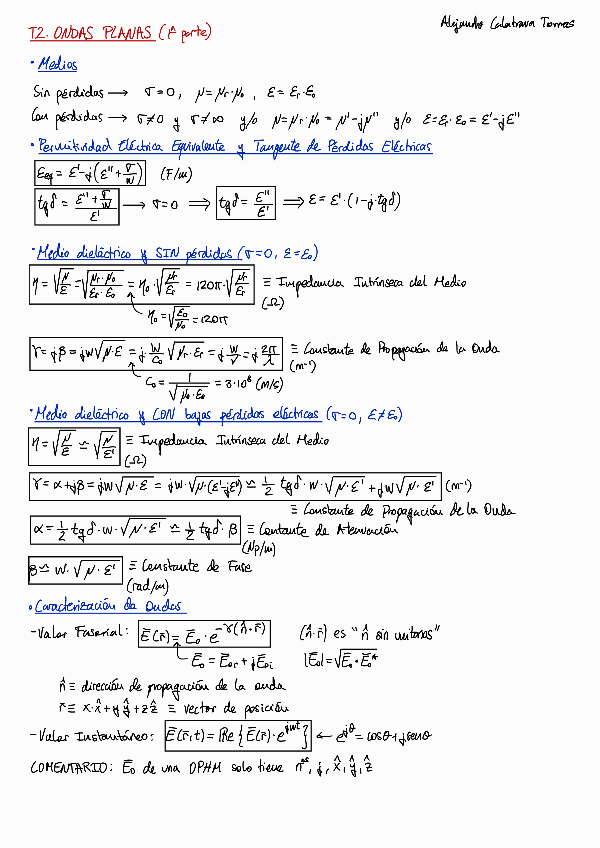 Alejandro Calatrava Torres
T2. ONDAS PLANAS (1ª parte)
· Medios
Sin pérdidas → σ=0, μ=μr·μ0, ε=εr·ε0
Con pérdidas → σ≠0 y σ≠∞ y/o μ=μr·μ0=μ'-jμ'' y/o ε=εr·ε0=ε'-jε''
· Permitividad Eléctrica Equivalente y Tangente de Pérdidas Eléctricas
εeq = ε'-j(ε''+σ/w) (F/m)
tgδ = (ε''+σ/w)/ε' → σ=0 ⇒ tgδ = ε''/ε' ⇒ ε=ε'·(1-j·tgδ)
· Medio dieléctrico y SIN pérdidas (σ=0, ε=ε0)
η=√(μ/ε)=√(μr·μ0/εr·ε0)=η0·√(μr/εr)=120π·√(μr/εr) ≡ Impedancia Intrínseca del Medio
(Ω)
η0=√(ε0/μ0)=120π
γ=jβ=jw√(μ·ε)=j w/c0 √(μr·εr)=j w/v=j 2π/λ ≡ Constante de Propagación de la Onda
(m⁻¹)
c0=1/√(μ0·ε0)=3·10⁸ (m/s)
· Medio dieléctrico y CON bajas pérdidas eléctricas (σ=0, ε≠ε0)
η=√(μ/ε)≃√(μ/ε') ≡ Impedancia Intrínseca del Medio
(Ω)
γ=α+jβ=jw√(μ·ε)=jw·√(μ·(ε'-jε''))≃1/2 tgδ·w·√(μ·ε')+jw√(μ·ε') (m⁻¹)
≡ Constante de Propagación de la Onda
α=1/2 tgδ·w·√(μ·ε')≃1/2 tgδ·β ≡ Contante de Atenuación
(Np/m)
β≃w·√(μ·ε') ≡ Constante de Fase
(rad/m)
· Caracterización de Ondas
-Valor Fasorial: Ē(r̄)=Ē0·e^-γ(n̂·r̄) (n̂·r̄) es "n̂ sin unitarios"
Ē0=Ē0r+jĒ0i |Ē0|=√(Ē0·Ē0*)
n̂≡ dirección de propagación de la onda
r̄≡ x·x̂+yŷ+zẑ ≡ vector de posición
-Valor Instantáneo: Ē(r̄,t)=Re{Ē(r̄)·e^jwt} ← e^jθ=cosθ+jsenθ
COMENTARIO: Ē0 de una OPHM solo tiene nºs, j, x̂, ŷ, ẑ